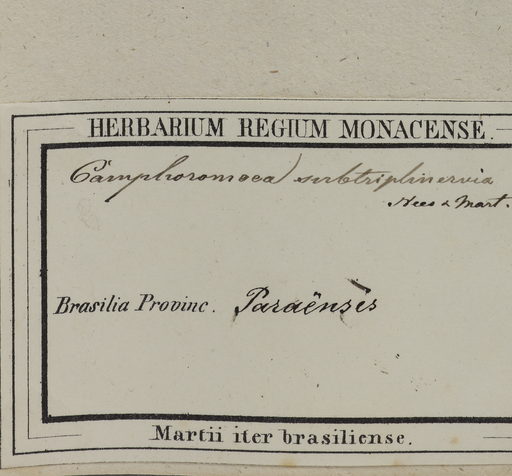 HERBARIUM REGIUM MONACENSE.
Camphoromoea subtriplinervia
Nees & Mart.
Brasilia Provinc. Paraënsis
Martii iter brasiliense.